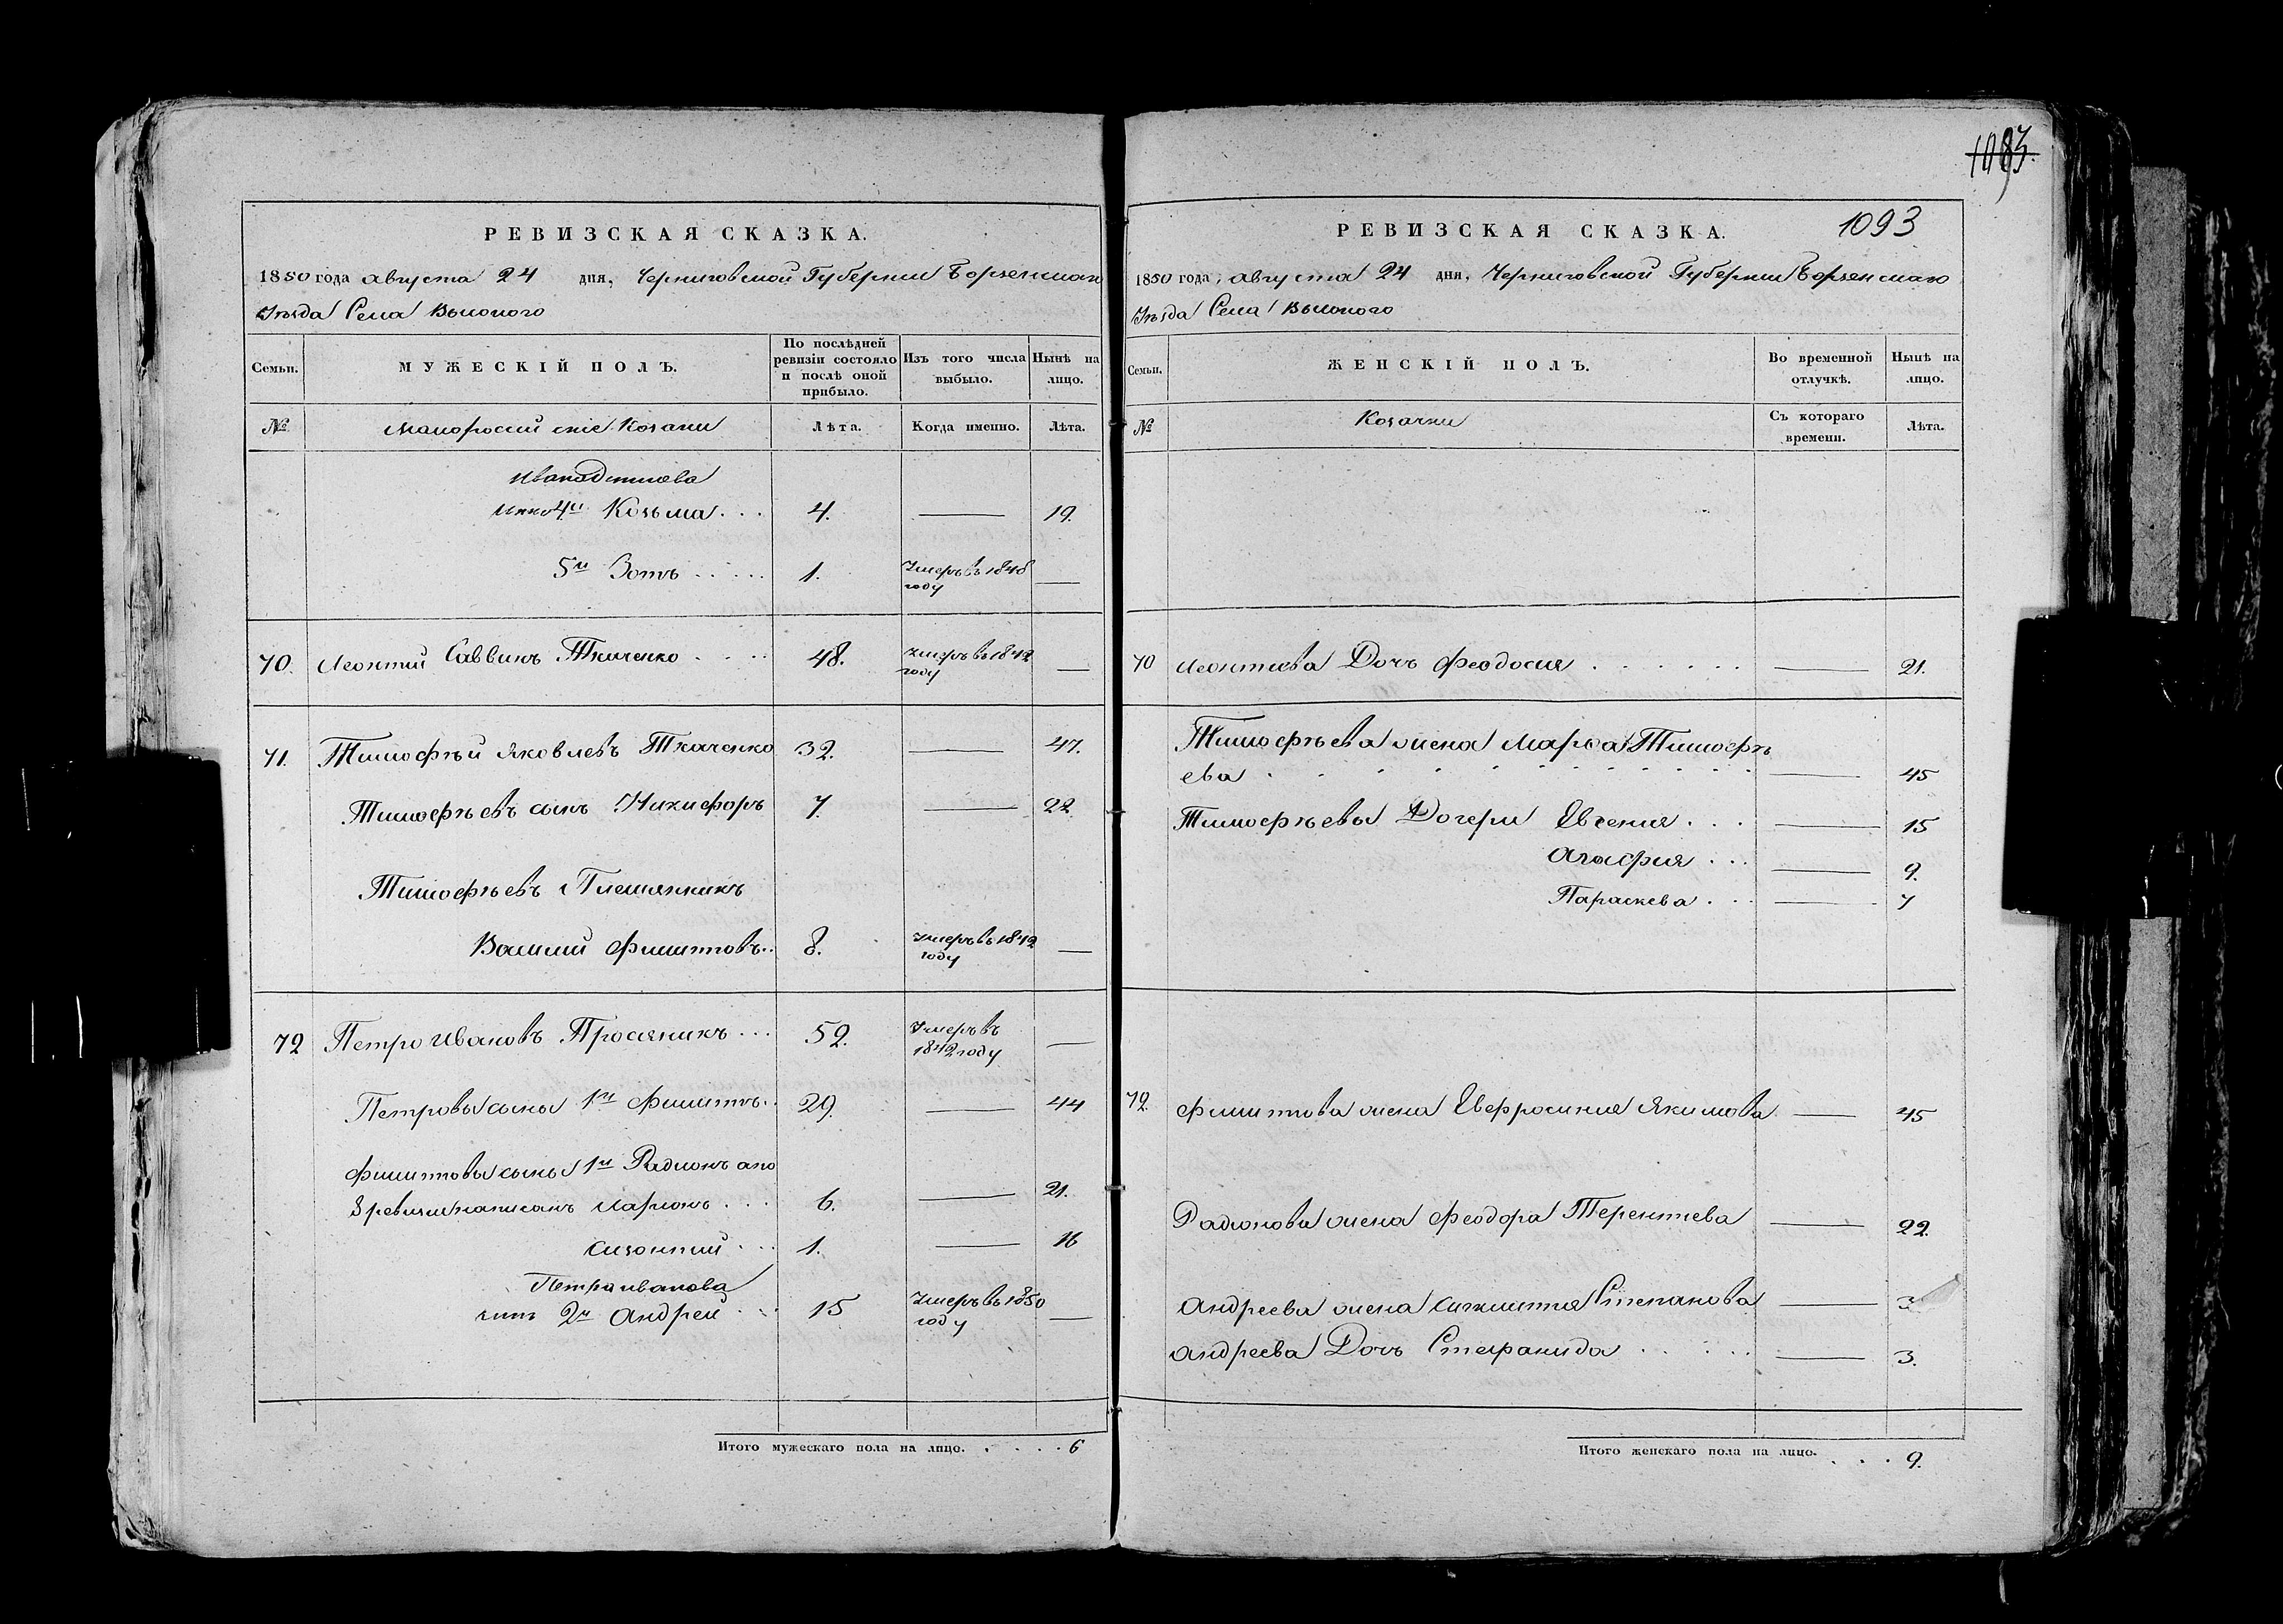 1083.
РЕВИЗСКАЯ СКАЗКА.
1850 года августа 24 дня, Черниговской Губернии Борзенскаго
Уѣзда Села Высокого
Семьи.
МУЖЕСКІЙ ПОЛЪ.
По послѣдней ревизіи состояло и послѣ оной прибыло.
Изъ того числа выбыло.
Нынѣ на лицо.
№
Малороссийские Козаки
Лѣта.
Когда именно.
Лѣта.
4й Козьма . . . 4. — 19.
5й Зотъ . . . . . 1. Умеръ въ 1848 году —
70. Леонтий Саввинъ Ткаченко . . . . 48. Умеръ въ 1842 году —
71. Тимофѣй Яковлевъ Ткаченко 32. — 47.
Тимофѣевъ сынъ Никифоръ 7. — 22
Тимофѣевъ Племянникъ
Василий Филиповъ . . 8. Умеръ въ 1842 году —
72 Петро Ивановъ Просяникъ . . . 52. Умеръ въ 1842 году —
Петровы сыны 1й Филиппъ . . 29. — 44
Филиповы сыны 1й Радионъ а по
8 ревизии написанъ Ларионъ . . . 6. — 21.
Сизонтий . . . 1. — 16
Петра Иванова
сынъ 2й Андрей . . . 15 Умеръ въ 1850 году —
Итого мужескаго пола на лицо. . . . . . 6
РЕВИЗСКАЯ СКАЗКА.
1093
1850 года, августа 24 дня, Черниговской Губернии Борзенскаго
Уѣзда Села Высокого
Семьи.
ЖЕНСКІЙ ПОЛЪ.
Во временной отлучкѣ.
Нынѣ на лицо.
№
Козачки
Съ котораго времени.
Лѣта.
70 Леонтиева Дочь Феодосия . . . . . . . — 21.
Тимофѣева жена Марфа Тимофѣ
ева . . . . . . . . . . . — 45
Тимофѣевы Дочери Евгения . . . — 15
Агафия . . . — 9.
Параскева . . . — 7
72. Филипова жена Евфросиния Якимова — 45
Радионова жена Феодора Терентиева — 22.
Андреева жена Степанова —
Андреева Дочь Стефанида . . . . . — 3.
Итого женскаго пола на лицо. . . . 9.